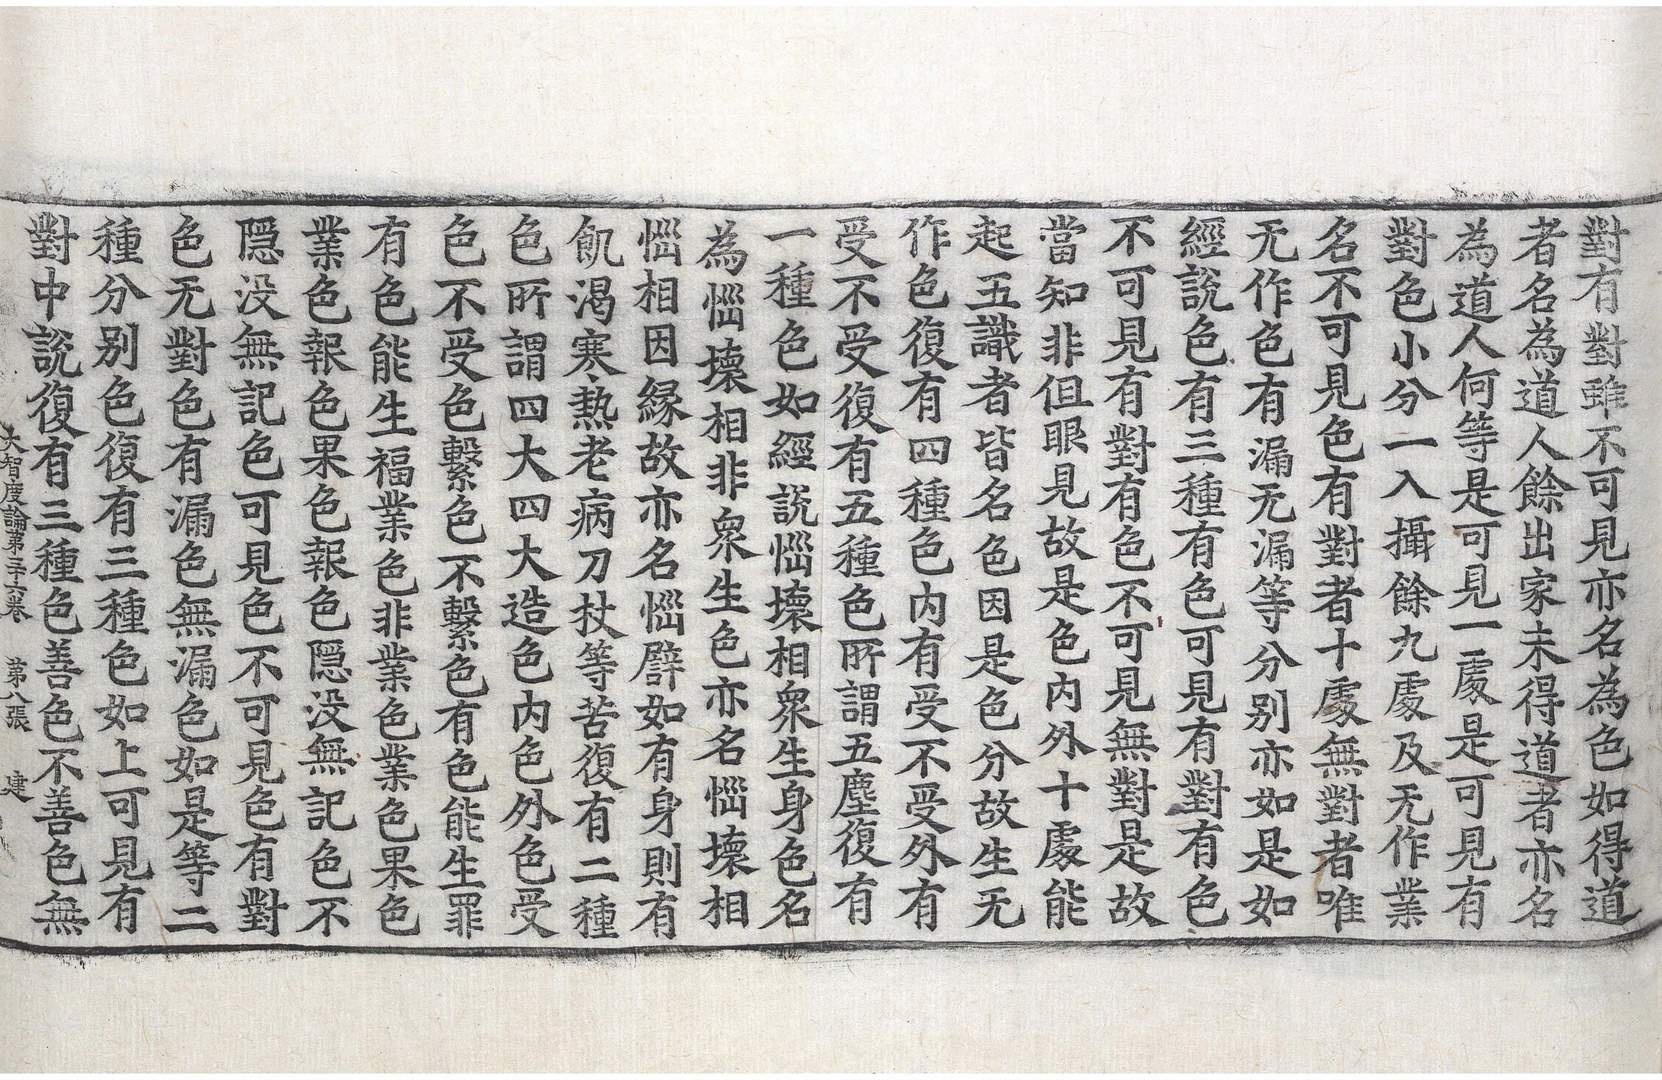 對有對雖不可見亦名為色如得道
者名為道人餘出家未得道者亦名
為道人何等是可見一處是可見有
對色小分一入攝餘九處及无作業
名不可見色有對者十處無對者唯
无作色有漏无漏等分別亦如是如
經說色有三種有色可見有對有色
不可見有對有色不可見無對是故
當知非但眼見故是色內外十處能
起五識者皆名色因是色分故生无
作色復有四種色內有受不受外有
受不受復有五種色所謂五塵復有
一種色如經說惱壞相眾生身色名
為惱壞相非眾生色亦名惱壞相
惱相因緣故亦名惱譬如有身則有
飢渴寒熱老病刀杖等苦復有二種
色所謂四大四大造色內色外色受
色不受色繫色不繫色有色能生罪
有色能生福業色非業色業色果色
業色報色果色報色隱没無記色不
隱没無記色可見色不可見色有對
色无對色有漏色無漏色如是等二
種分別色復有三種色如上可見有
對中說復有三種色善色不善色無
大智度論第三十六卷 第八張 建